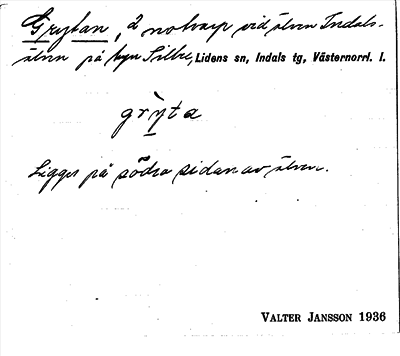 Grytan, 2 notvarp vid älven Indals-
älven på byn Sillre, Lidens sn, Indals tg, Västernorrl. l.
grỳta
Ligger på södra sidan av älven.
VALTER JANSSON 1936